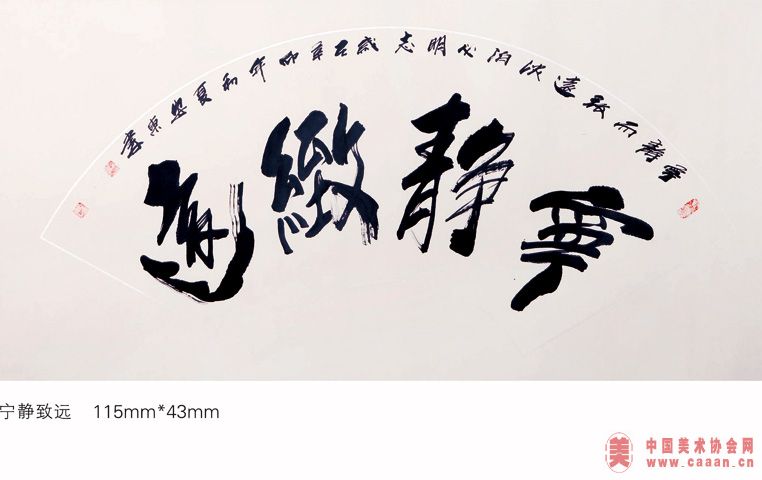 寧静緻遠
寧静而致遠淡泊以明志歲在辛卯年初夏東書
宁静致远 115mm*43mm
美 中国美术协会网
www.caaan.cn